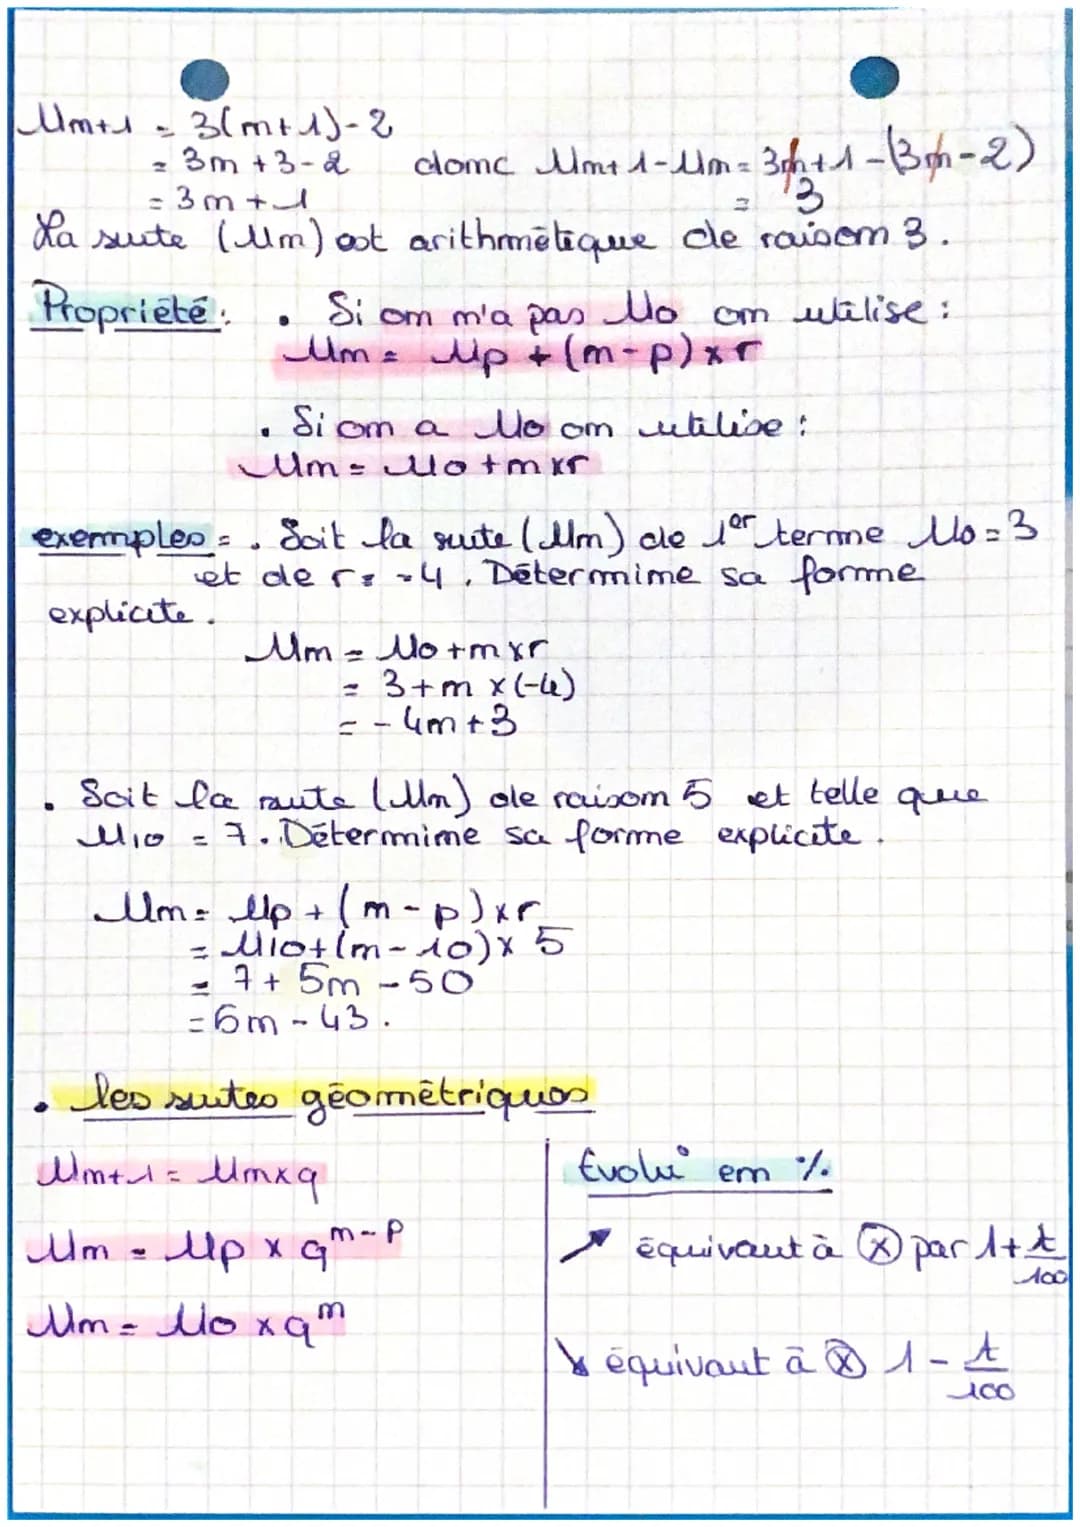 Un+1 = 3(n+1)-2
= 3n+3-2 donc Un+1-Un = 3n+1-(3n-2)
= 3n+1 = 3
La suite (Un) est arithmétique de raison 3.
Propriété: • Si on n'a pas U0 on utilise :
Un = Up + (n-p)×r
• Si on a U0 on utilise :
Un = U0+n×r
exemples = • Soit la suite (Un) de 1er terme U0=3
et de r= -4. Détermine sa forme
explicite.
Un = U0+n×r
= 3+n×(-4)
= -4n+3
• Soit la suite (Un) de raison 5 et telle que
U10 = 7. Détermine sa forme explicite.
Un = Up + (n-p)×r
= U10+(n-10)×5
= 7+5n-50
=5n-43.
• les suites géométriques
Un+1 = Un×q
Un = Up × q^n-p
Un = U0 × q^n
Évolu° en %
↗ équivaut à ⊗ par 1+t/100
↘ équivaut à ⊗ 1-t/100